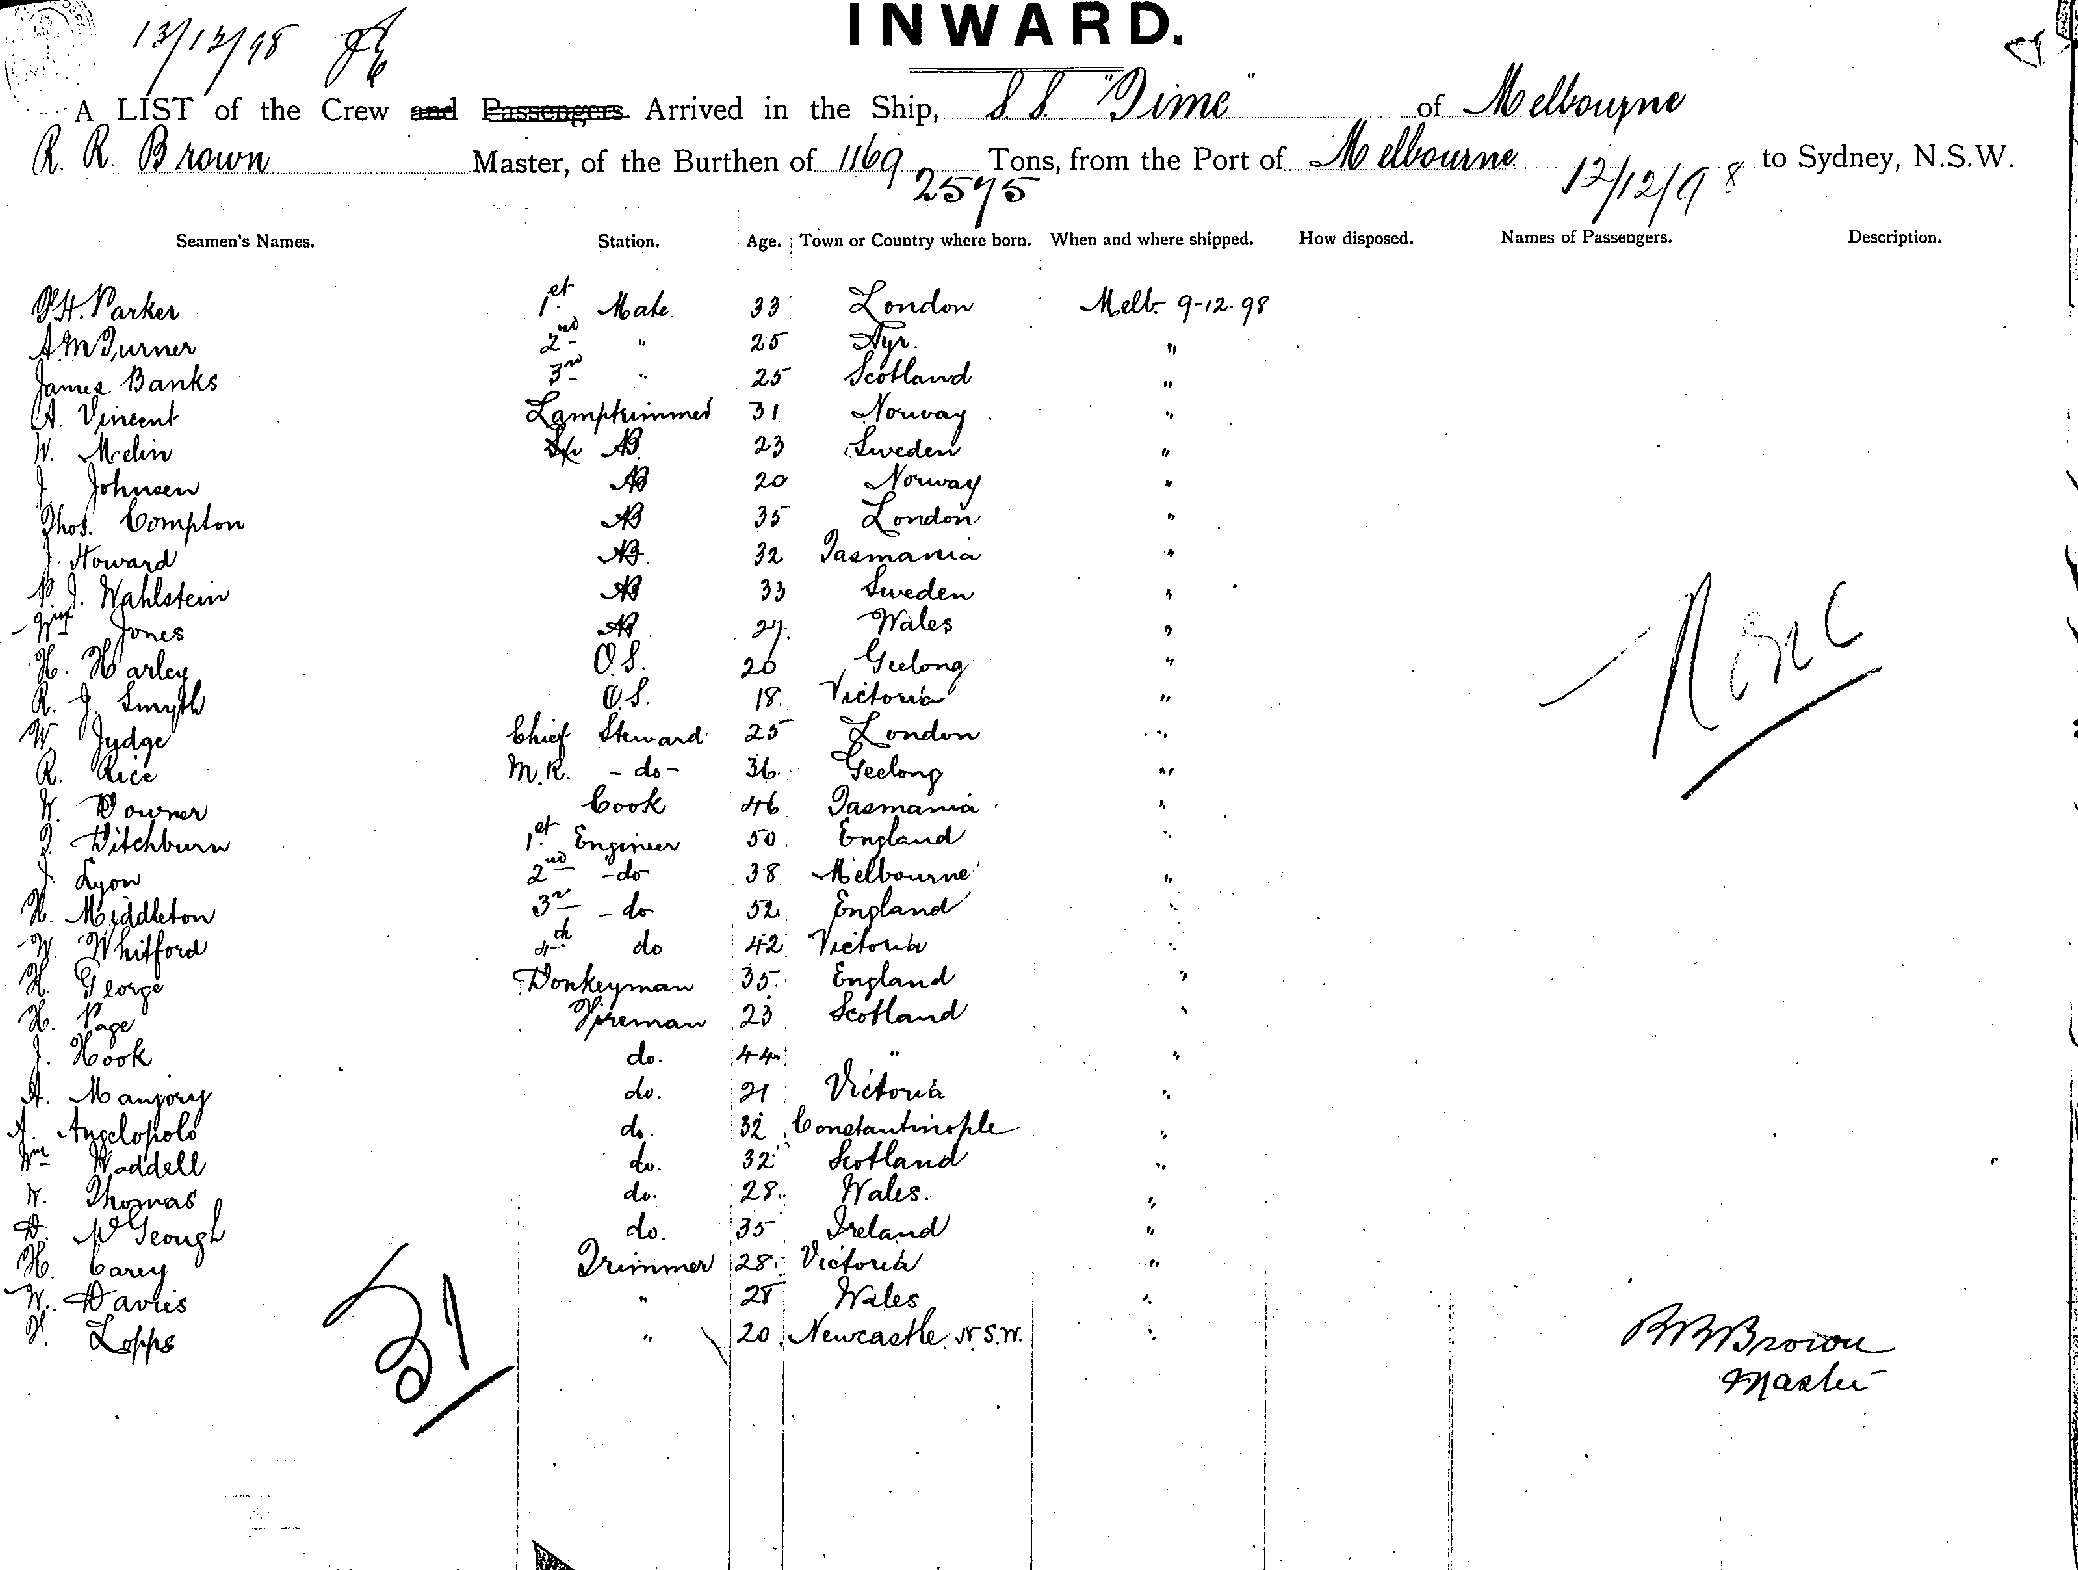 INWARD.
13/12/98
A LIST of the Crew and Passengers Arrived in the Ship, S S "Time" of Melbourne
R. R. Brown Master, of the Burthen of 1169 Tons, from the Port of Melbourne to Sydney, N.S.W.
2575 12/12/98
Seamen's Names. Station. Age. Town or Country where born. When and where shipped. How disposed. Names of Passengers. Description.
Parker 1st Mate 33 London Melb. 9-12-98
A. M Turner 2nd " 25 Ayr. "
James Banks 3rd " 25 Scotland "
A. Vincent Lamptrimmer 31 Norway "
W. Melin AB 23 Sweden "
J. Johnsen AB 20 Norway "
Thos. Compton AB 35 London "
J. Howard AB. 32 Tasmania "
P. J. Wahlstein AB 33 Sweden "
Wm Jones AB 27. Wales "
H. Harley O.S. 20 Geelong "
R. J. Smyth O.S. 18. Victoria "
W Judge Chief Steward 25 London "
R. Rice M.R. - do - 36 Geelong "
W. Downer Cook 46 Tasmania "
Ditchburn 1st Engineer 50 England "
J. Lyon 2nd - do 38 Melbourne "
H. Middleton 3rd - do 52 England "
W. Whitford 4th do 42 Victoria "
H. George Donkeyman 35. England "
H. Page Fireman 23 Scotland "
J. Hook do. 44 " "
A. Manjory do. 21 Victoria "
Angelopolo do. 32 Constantinople "
Wm Waddell do. 32 Scotland "
W. Thomas do. 28. Wales. "
D. McGeough do. 35 Ireland "
H. Carey Trimmer 28 Victoria "
W. Davies " 28 Wales "
Lopps " 20 Newcastle N.S.W. "
31
R R Brown
Master